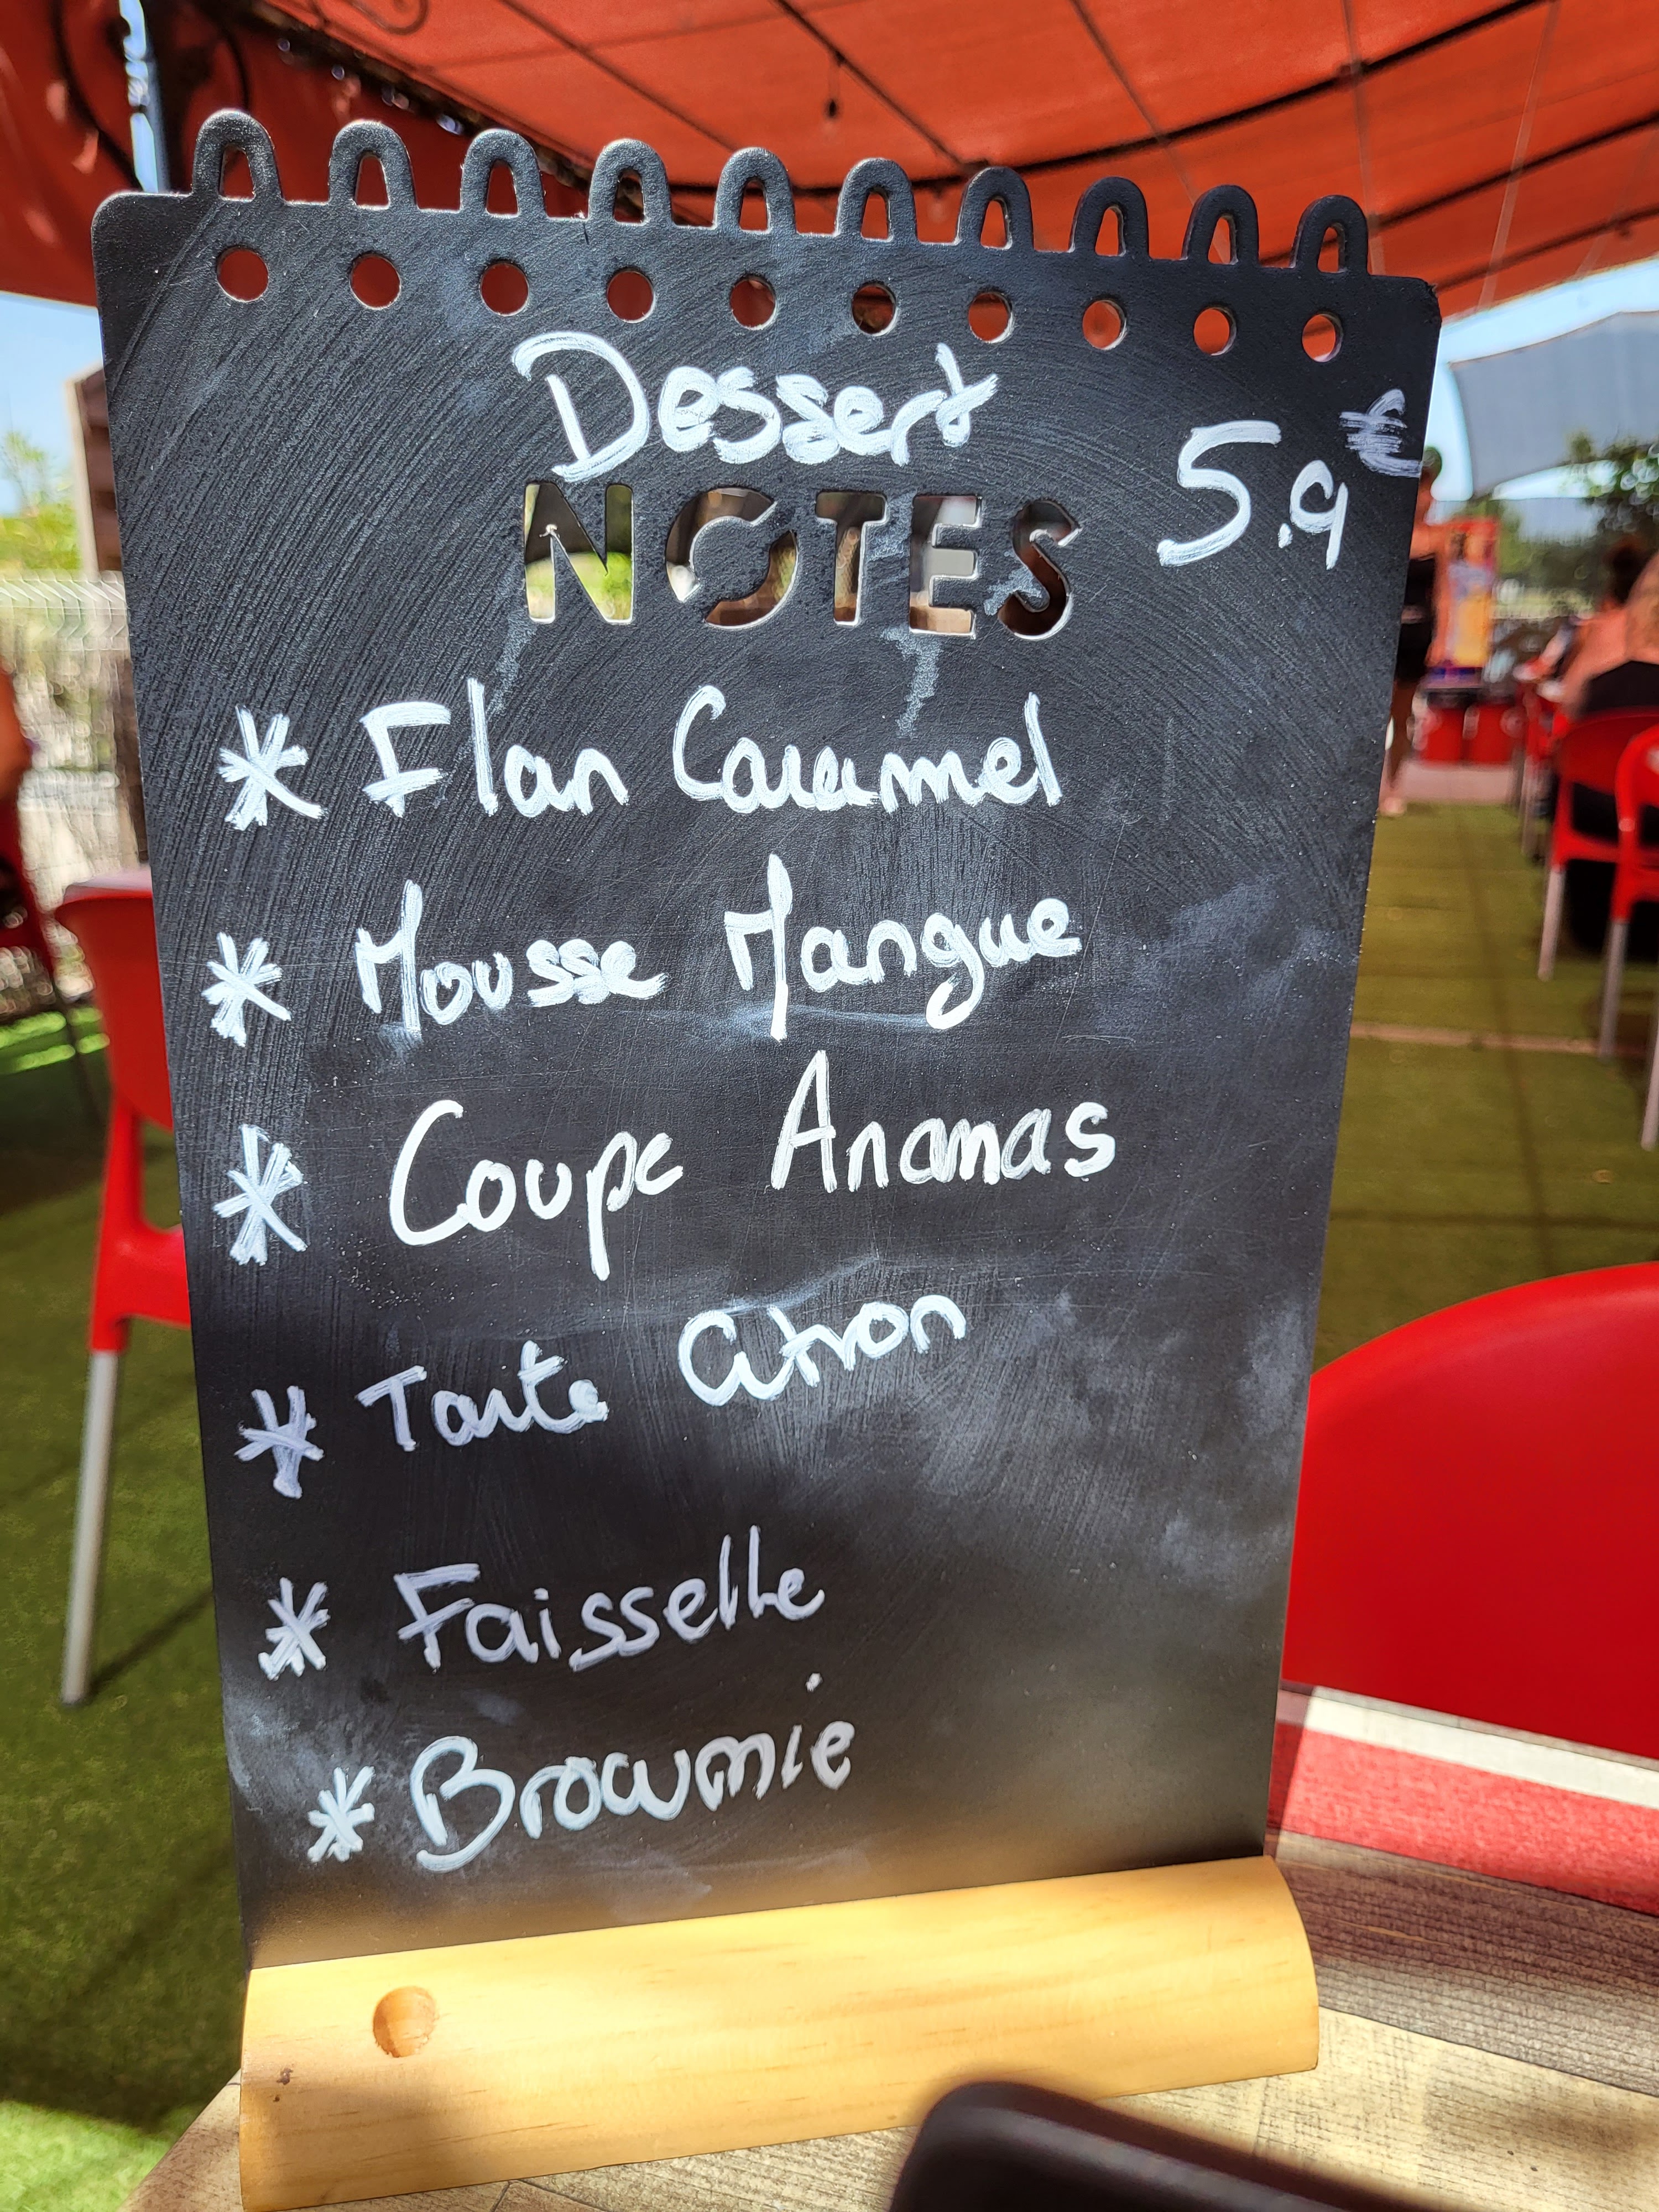 Dessert
5.9€
NOTES
* Flan Caramel
* Mousse Mangue
* Coupe Ananas
* Tarte Citron
* Faisselle
* Brownie